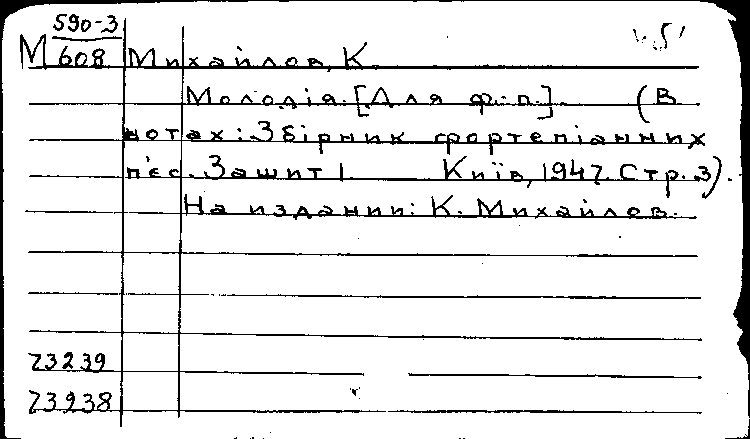 590-3
М 608 Михайлов, К.
Молодія. [Для ф.-п.]. (В
нотах: Збірник фортепіанних
п'єс. Зашит 1 Київ, 1947. Стр. 3).
На издании: К. Михайлов.
73239
73938